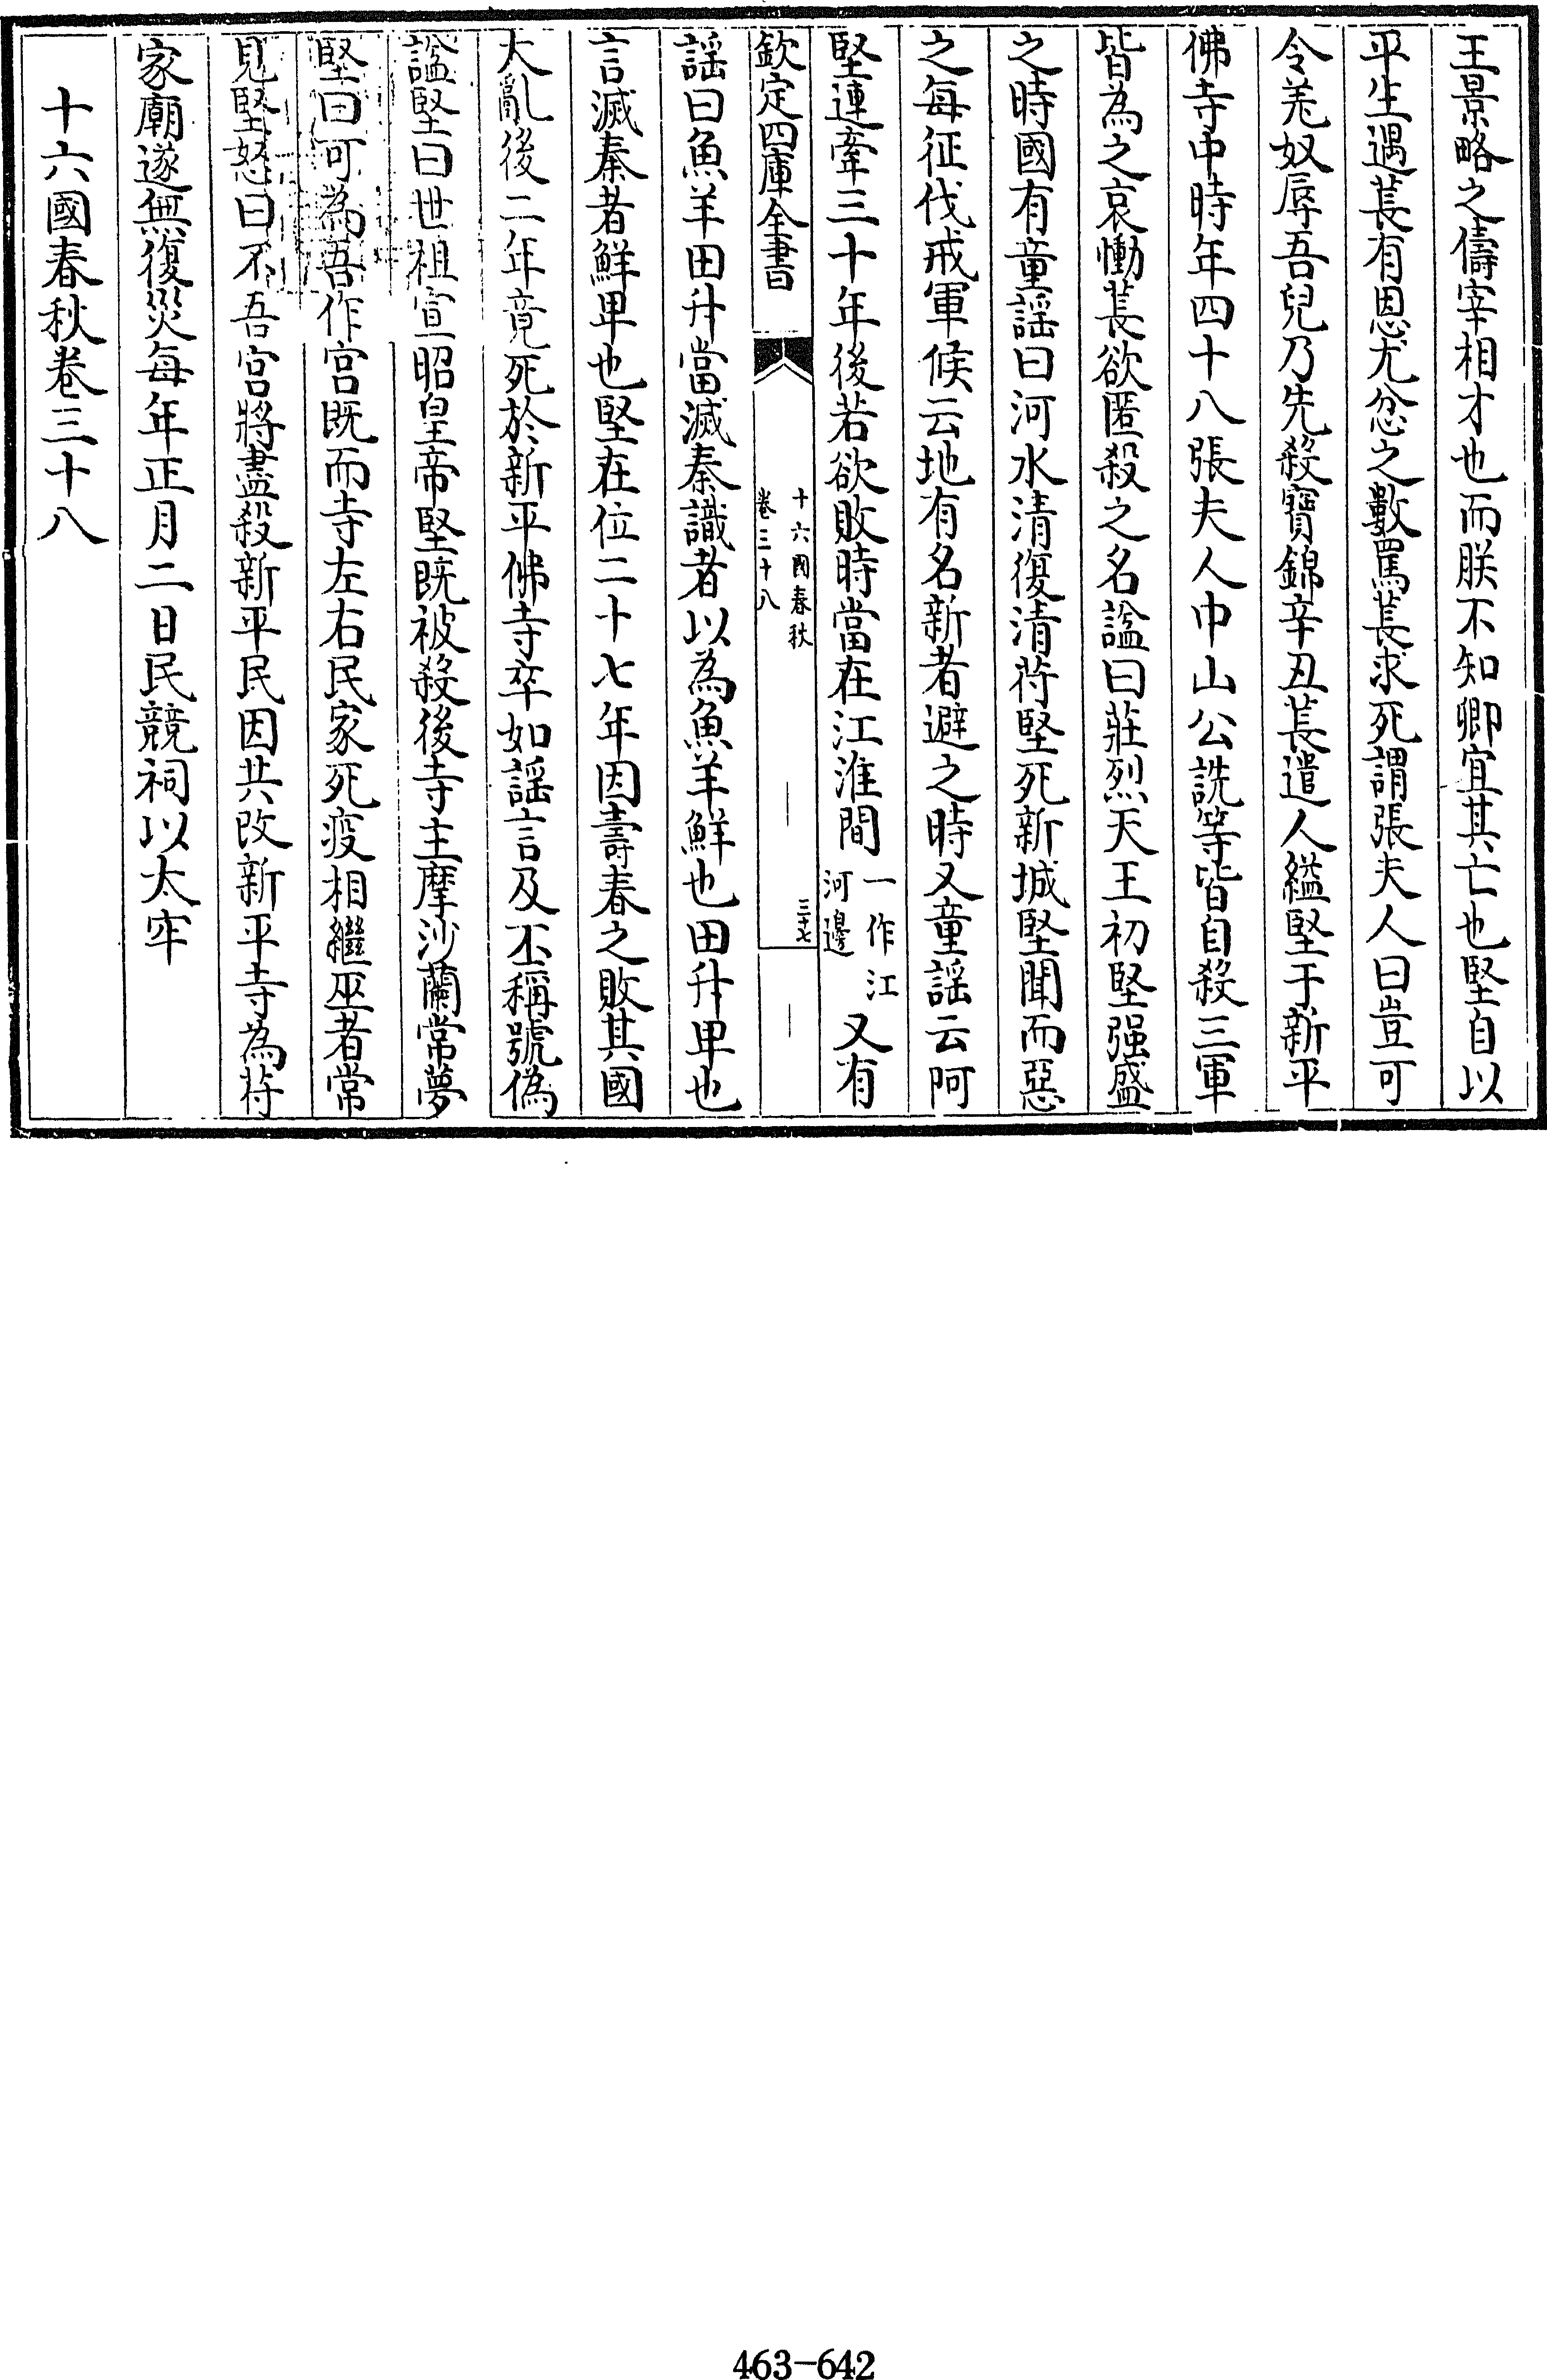 王景略之儔宰相才也而朕不知卿宜其亡也堅自以
平生遇萇有恩尤忿之數罵萇求死謂張夫人曰豈可
令羌奴辱吾兒乃先殺寶錦辛丑萇遣人縊堅于新平
佛寺中時年四十八張夫人中山公詵等皆自殺三軍
皆為之哀慟萇欲匿殺之名諡曰莊烈天王初堅强盛
之時國有童謡曰河水清復清苻堅死新城堅聞而惡
之每征伐戒軍候云地有名新者避之時又童謡云阿
堅連牽三十年後若欲敗時當在江淮間一作江河邊又有
欽定四庫全書
十六國春秋
卷三十八
三十七
謡曰魚羊田升當滅秦識者以為魚羊鮮也田升卑也
言滅秦者鮮卑也堅在位二十七年因壽春之敗其國
大亂後二年竟死於新平佛寺卒如謡言及丕稱號偽
諡堅曰世祖宣昭皇帝堅既被殺後寺主摩沙蘭常夢
堅曰可為吾作宫既而寺左右民家死疫相繼巫者常
見堅怒曰不吾宫將盡殺新平民因共改新平寺為苻
家廟遂無復災每年正月二日民競祠以太牢
十六國春秋卷三十八
463-642